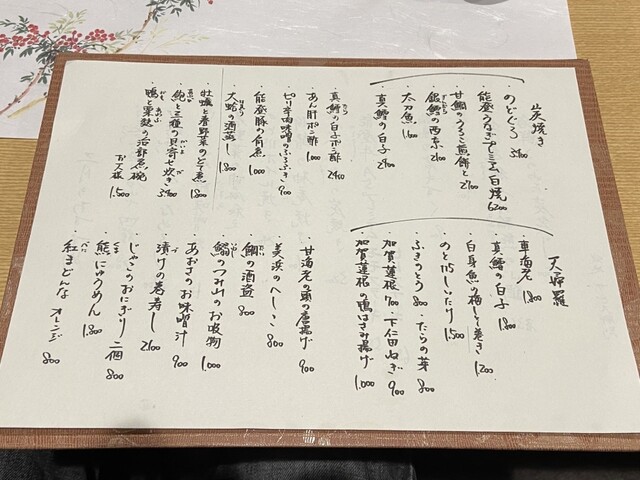 炭焼き
・のどぐろ 3400
・能登うなぎプレミアム白焼 6200
・甘鯛のうろこ煎餅と 2700
・銀鱈の西京 2100
・太刀魚 1600
・真鱈の白子 2400
・真鱈の白子ポン酢 2400
・あん肝ポン酢 1000
・ピリ辛肉味噌のふろふき 900
・能登豚の角煮 1000
・大蛤の酒蒸し 1800
・牡蠣と春野菜のどて煮 1800
・鮑と三種の貝寄せ炊き 3400
・鴨と粟麩の治部煮椀
1500
天婦羅
・車海老 1800
・真鱈の白子 1800
・白身魚の梅しそ巻き 1200
・のと115しいたけ 1500
・ふきのとう 800 ・たらの芽 800
・加賀蓮根 700 ・下仁田ねぎ 900
・加賀蓮根の鴨はさみ揚げ 1000
・甘海老の頭の唐揚げ 900
・美浜のへしこ 800
・鯛の酒盗 800
・鰯のつみ入のお吸物 1000
・あおさのお味噌汁 900
・漬けの巻寿し 2600
・じゃこのおにぎり 二個 800
・熊にゅうめん 1800
・紅まどんな オレンジ 800